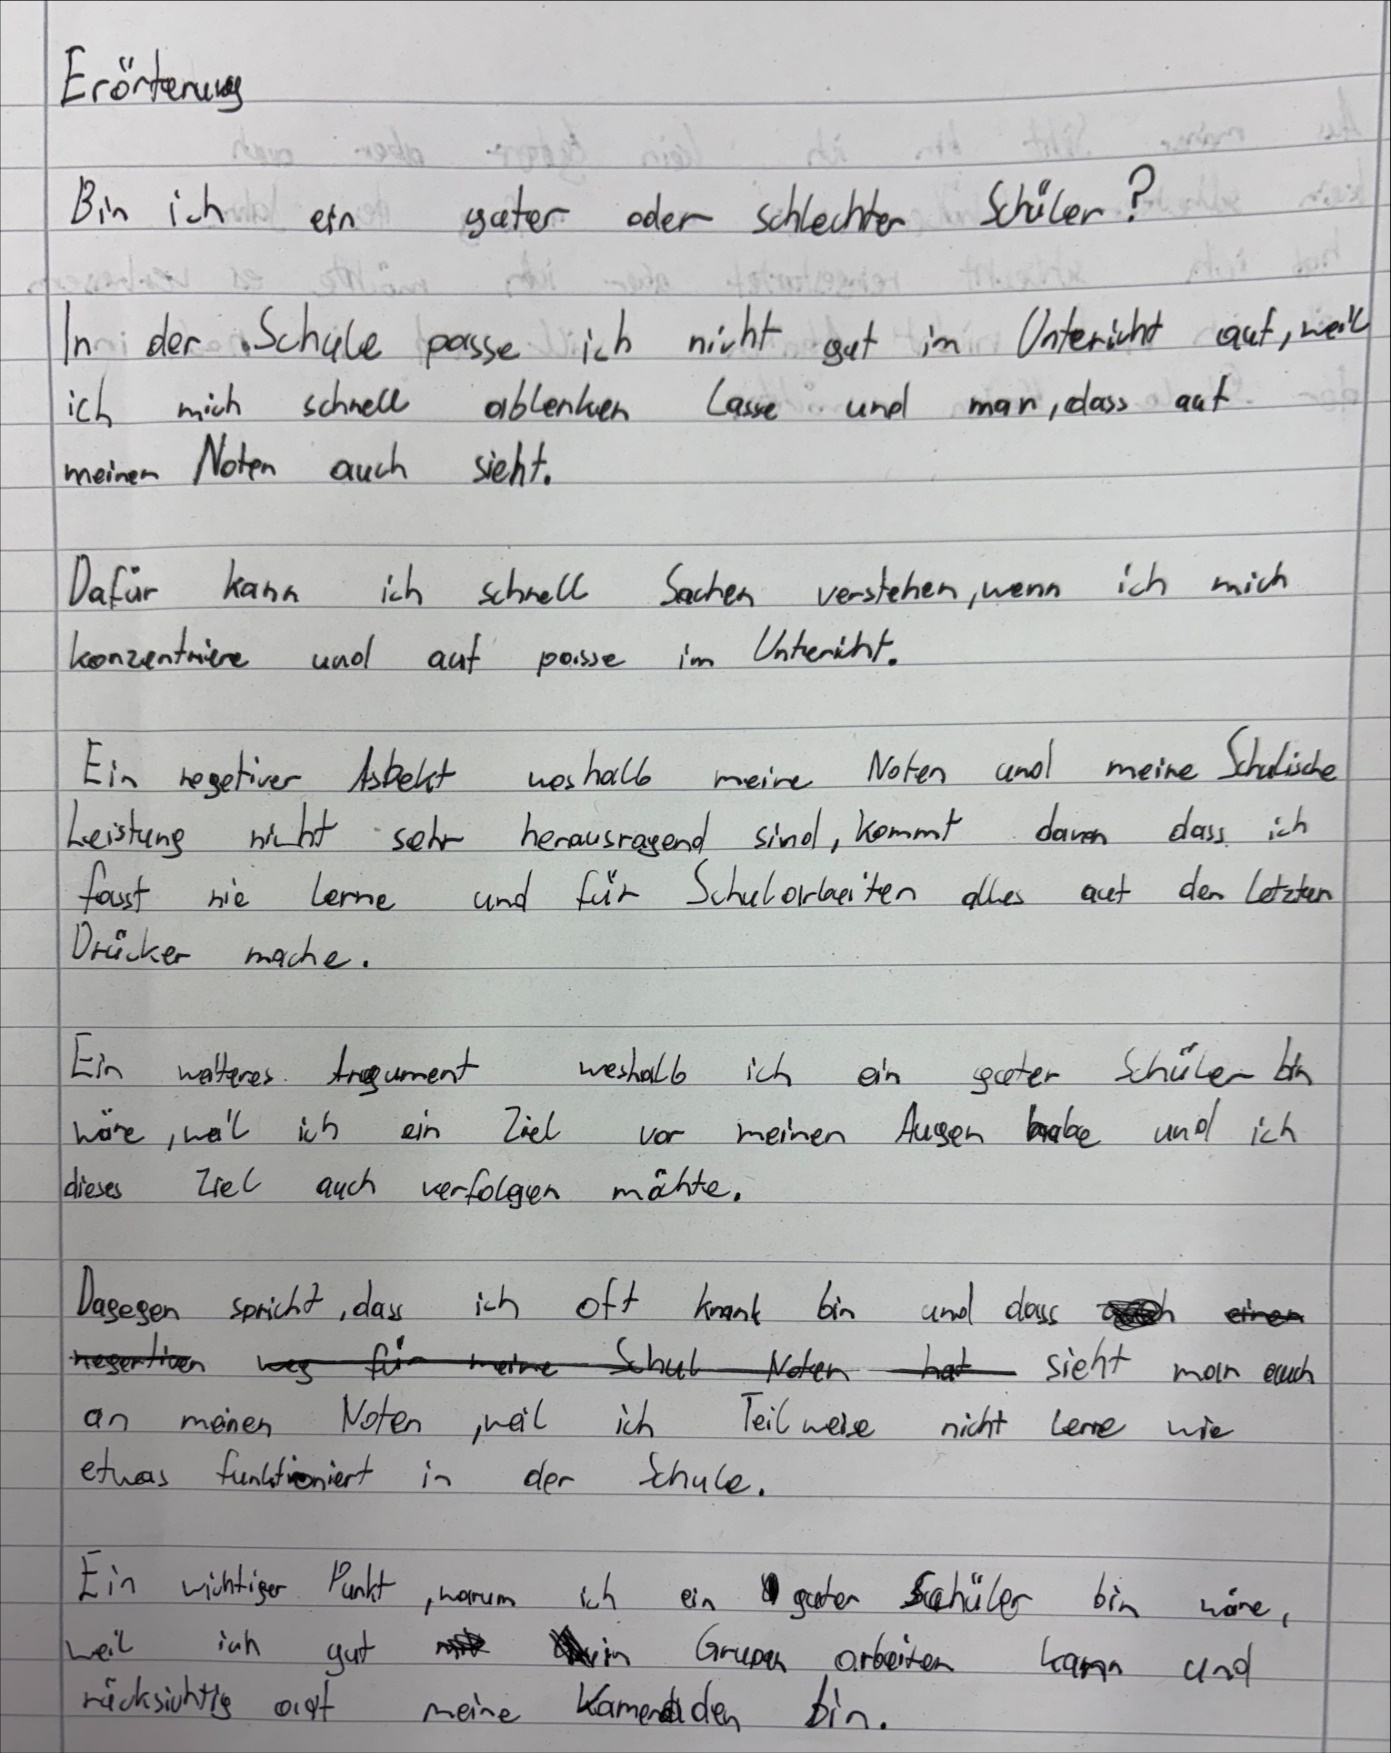 Erörterung
Bin ich ein guter oder schlechter Schüler?
In der Schule passe ich nicht gut im Untericht auf, weil
ich mich schnell ablenken Lasse und man, dass auf
meinen Noten auch sieht.
Dafür kann ich schnell Sachen verstehen, wenn ich mich
konzentriere und auf passe im Untericht.
Ein negetiver Asbekt weshalb meine Noten und meine Schulische
Leistung nicht sehr herausragend sind, kommt davon dass ich
fasst nie Lerne und für Schularbeiten alles auf den Letzten
Drücker mache.
Ein weiteres Argument weshalb ich ein guter Schüler bin
wäre, weil ich ein Ziel vor meinen Augen habe und ich
dieses Ziel auch verfolgen möhte.
Dagegen spricht, dass ich oft krank bin und dass einen
negertiven weg für meine Schul Noten hat sieht man auch
an meinen Noten, weil ich Teilweise nicht Lerne wie
etwas funktioniert in der Schule.
Ein wichtiger Punkt, warum ich ein guter Schüler bin wäre,
weil ich gut in Grupen arbeiten kann und
rücksichtig auf meine Kameraden bin.